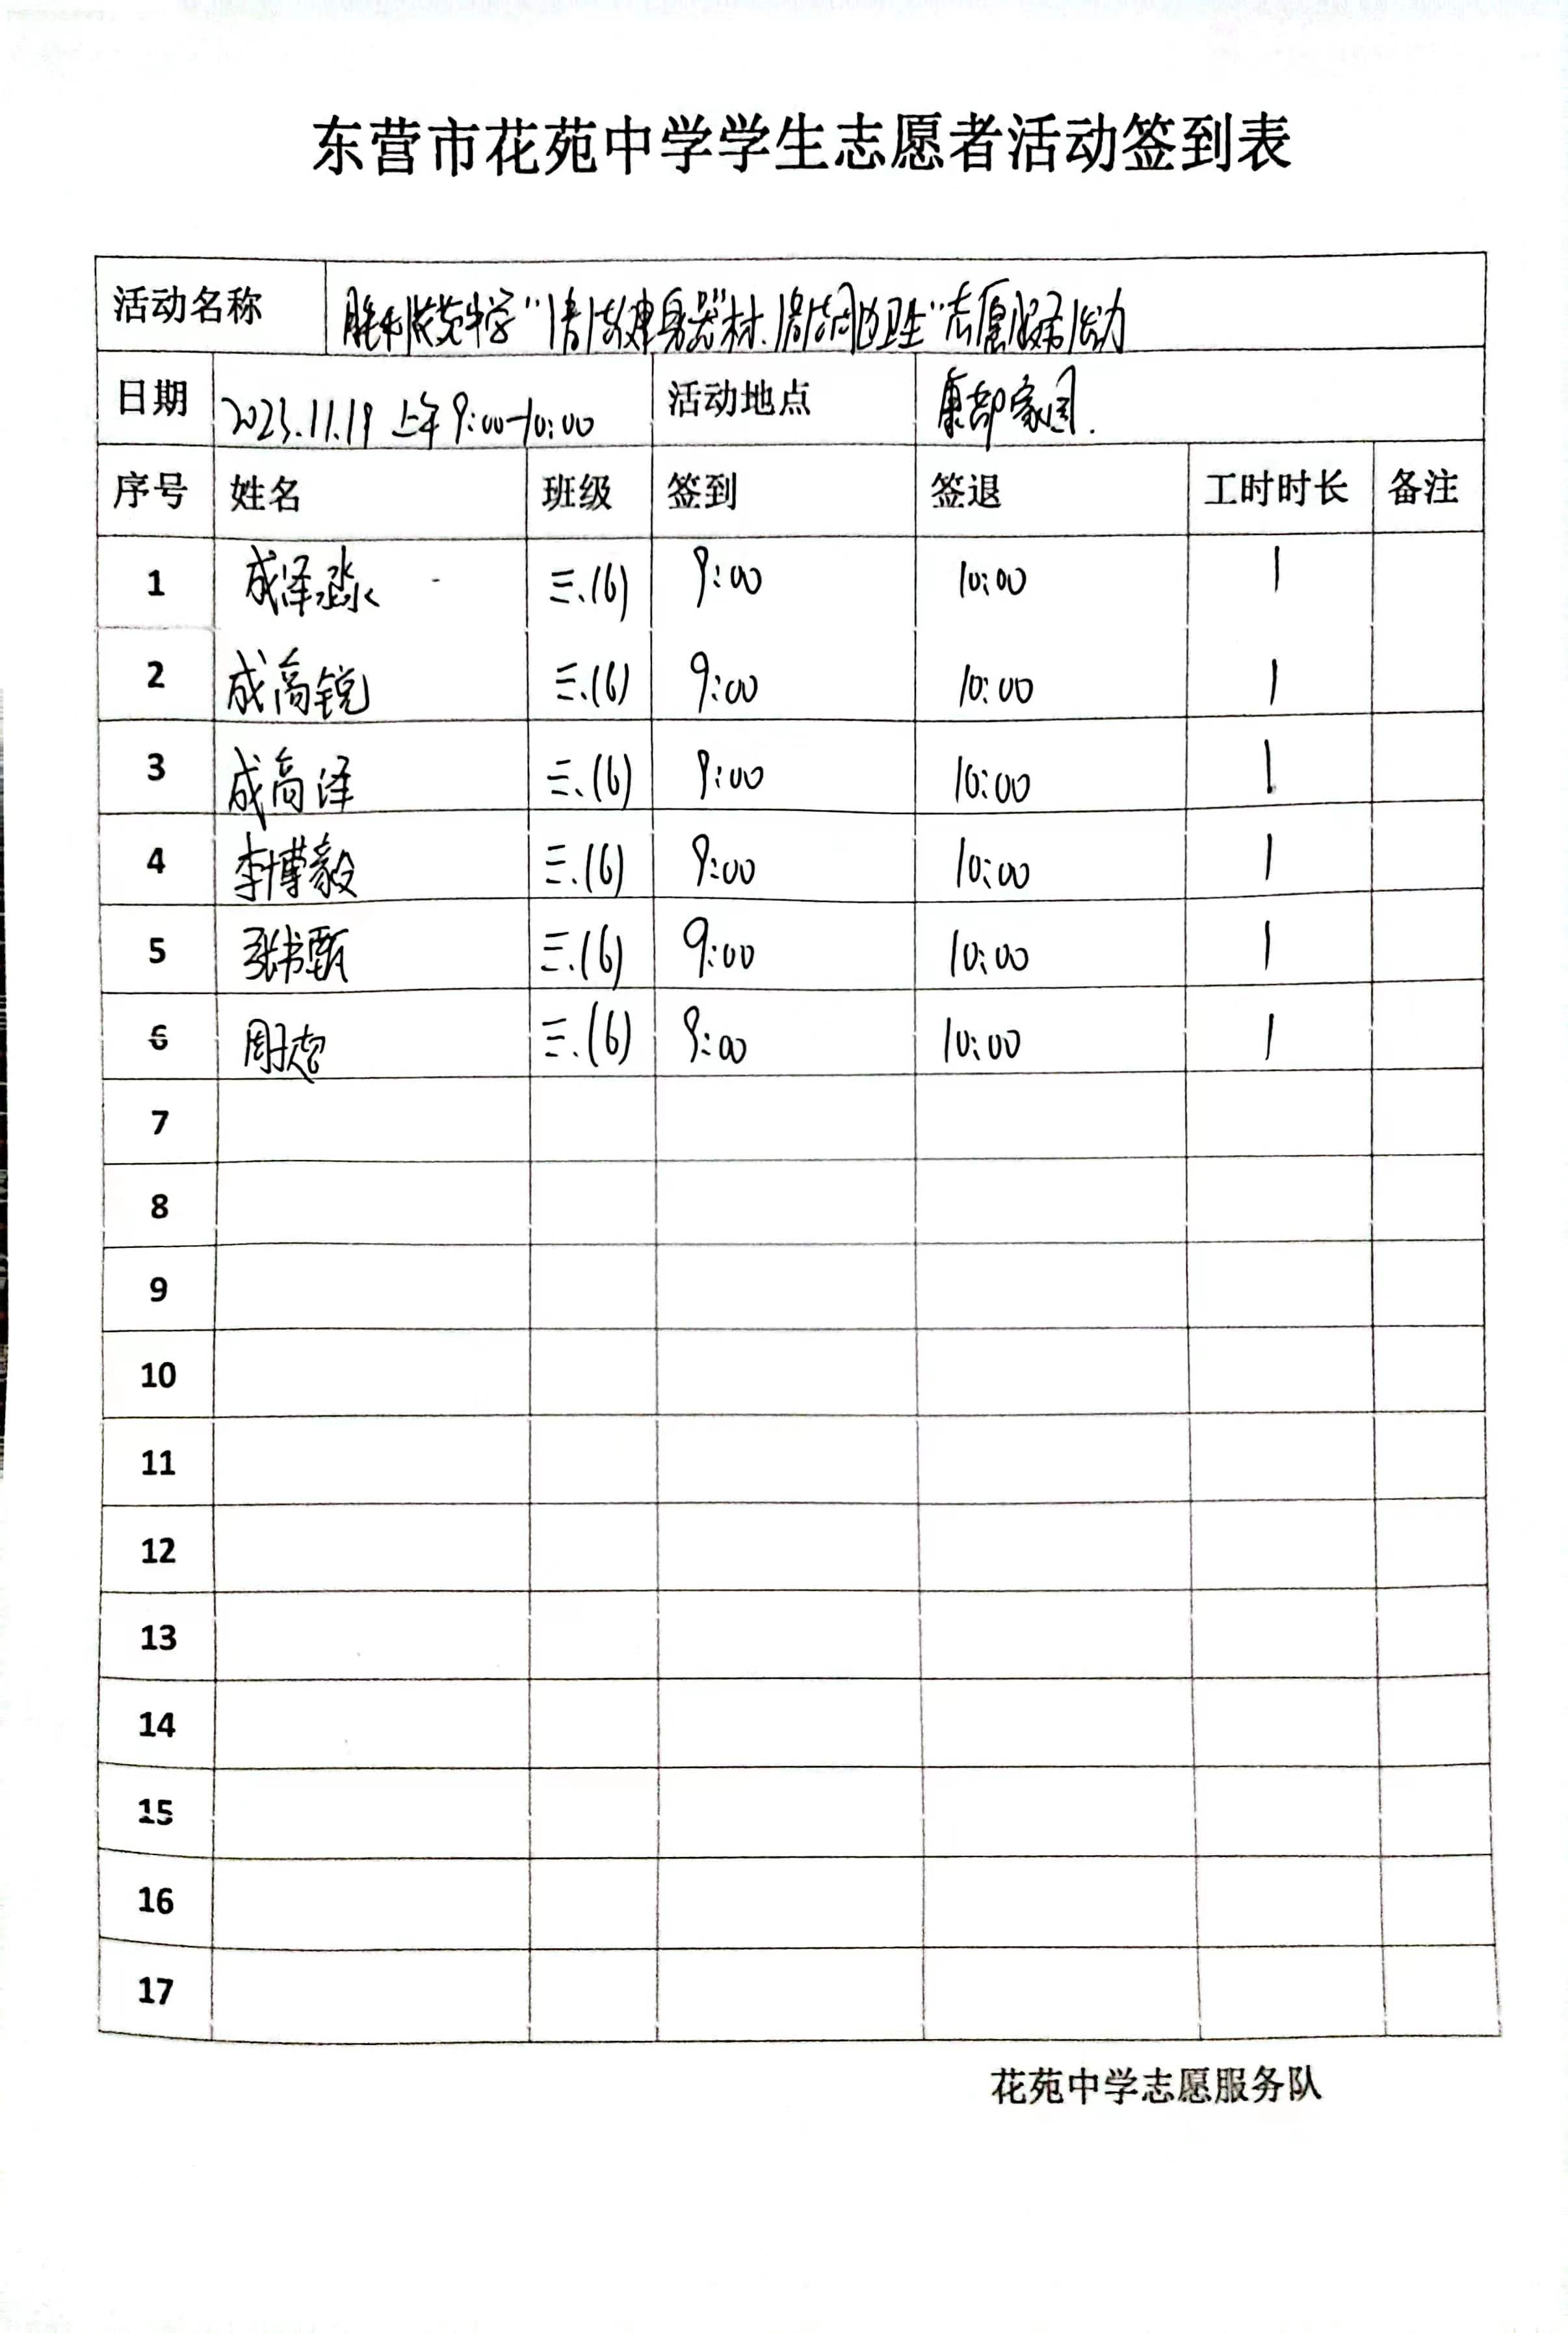 东营市花苑中学学生志愿者活动签到表
活动名称 胜利花苑中学“清洁健身器材、清洁周边卫生”志愿服务活动
日期 2023.11.19 上午9:00-10:00 活动地点 康部家园.
序号 姓名 班级 签到 签退 工时时长 备注
1 成泽淼 三.(6) 9:00 10:00 1
2 成高锐 三.(6) 9:00 10:00 1
3 成高泽 三.(6) 9:00 10:00 1
4 李博毅 三.(6) 9:00 10:00 1
5 张书甄 三.(6) 9:00 10:00 1
6 三.(6) 9:00 10:00 1
7
8
9
10
11
12
13
14
15
16
17
花苑中学志愿服务队